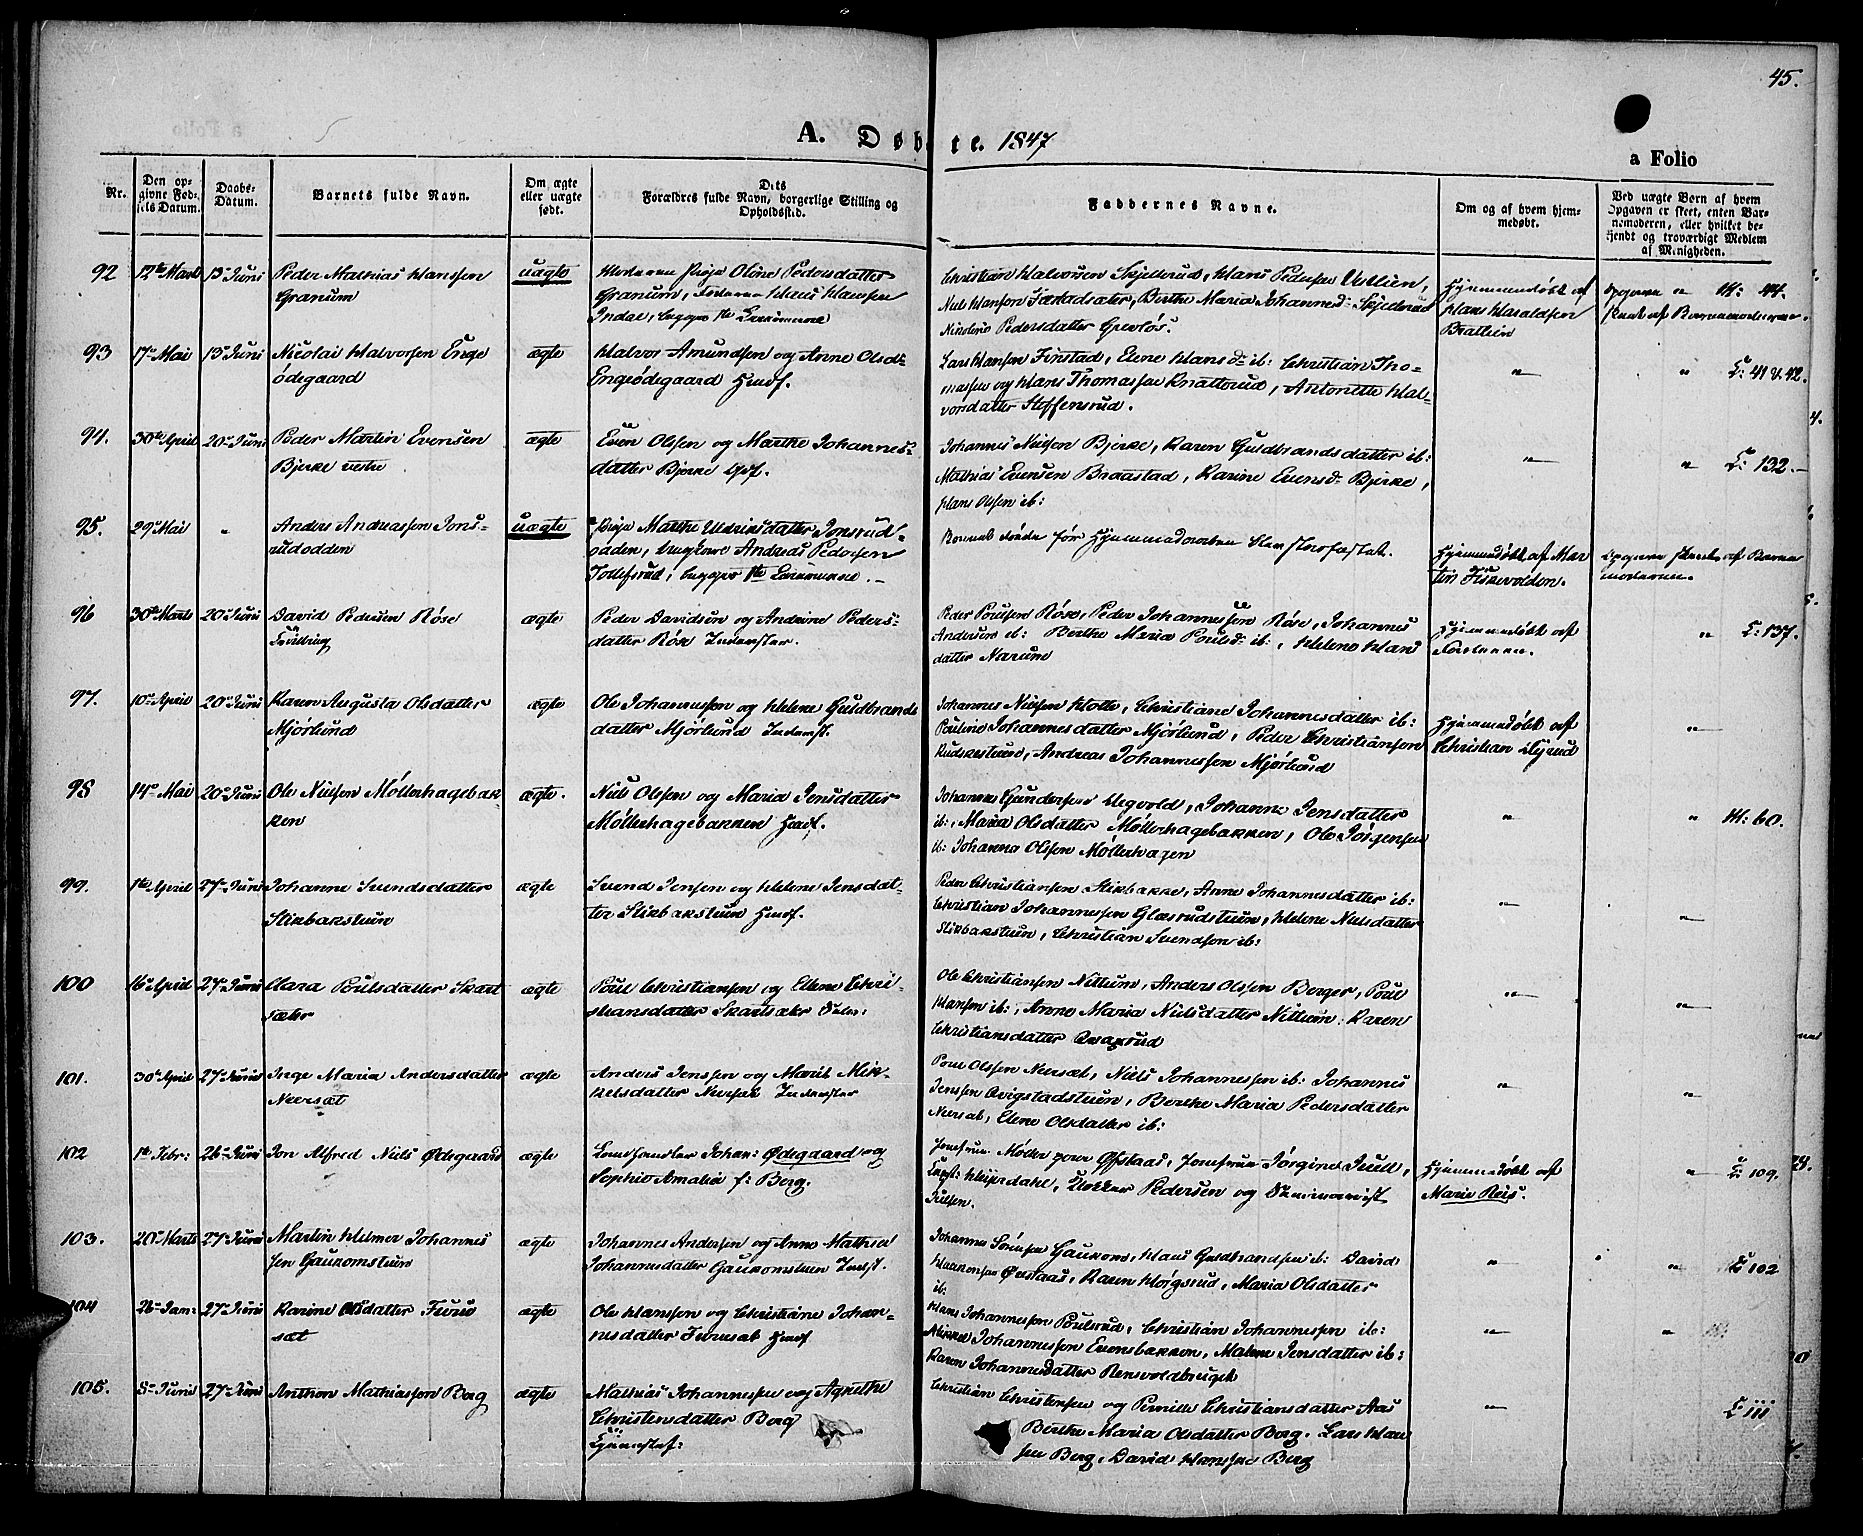 45.
A. Døbte. 1847
a Folio
Nr.
Den op-
givne Fød-
sels Datum.
Daabs-
Datum.
Barnets fulde Navn.
Om ægte
eller uægte
født.
Dets
Forældres fulde Navn, borgerlige Stilling og
Opholdssted.
Faddernes Navne.
Om og af hvem hjem-
medøbt.
Ved uægte Børn af hvem
Opgaven er skeet, enten Bar-
nemoderen, eller hvilket be-
kjendt og troværdigt Medlem
af Menigheden.
92 12te Marts 13de Juni Peder Mathias Hanssen
Granum
uægte
Moderen Pige Oline Pedersdatter
Granum, Faderen Hans Hansen
Indal, begges 1te Leiermaal
Christian Halvorsen Skjellerud, Hans Pedersen Vestlien,
Niels Hansen Fæstadsæter, Berthe Maria Johannesd:
Nicoline Pedersdatter Grevløs.
Hjemmedøbt af
Hans Haraldsen
Bratlien
Opgaven
skeet af Barnemoderen.
M: 44.
93 17de Mai 13de Juni Nicolai Halvorsen Enge
ødegaard
ægte
Halvor Amundsen og Anne Olsd:
Engeødegaard Huusf.
Lars Hansen Finstad, Elene Hansd: ib: Christian Tho-
massen og Hans Thomassen Knatterud, Antonette Hal-
vorsdatter Steffensrud.
" " L: 41 & 42.
94. 30te April 20de Juni Peder Martin Evensen
Bjerke vestre
ægte
Even Olsen og Marthe Johannes-
datter Bjerke
Johannes Nielsen Bjerke, Karen Guldbrandsdatter ib:
Mathias Evensen Braastad, Karine Evensd: Bjerke,
Hans Olsen ib:
" " L: 132.
95. 29de Mai " Anders Andreassen Jons-
rudodden
uægte
Pige Marthe Jonsrud-
odden, Andreas Pedersen
Tollefsrud, begges 1te Leiermaal.
Barnet døde før Hjemmedaaben blev stadfæstet.
Hjemmedøbt af Mar
tin Fiskevolden.
Opgaven skeet af Barne
moderen.
96 30te Marts 20de Juni David Pedersen Røse
Tvilling
ægte
Peder Davidsen og Andrine Peders-
datter Røse Inderster.
Peder Poulsen Røse, Peder Johannessen Røse, Johannes
Andersen ib: Berthe Maria Poulsd: ib:, Helene Hans
datter Narum
Hjemmedøbt af
" L: 137.
97. 10de April 20de Juni Karen Augusta Olsdatter
Mjørlund
ægte
Ole Johannessen og Helene Guldbrands
datter Mjørlund Inderst.
Johannes Nielsen Christiane Johannesdatter ib:
Pauline Johannesdatter Mjørlund, Peder Christiansen
Andreas Johannessen Mjørlund
Hjemmedøbt af
Christian
"
98 14de Mai 20de Juni Ole Nielsen Møllerhagebak
ken
ægte.
Niels Olsen og Maria Jensdatter
Møllerhagebakken Huusf.
Johannes Gundersen Johanne Jensdatter
ib:, Maria Olsdatter Møllerhagebakken, Ole Jørgensen
ib: Johannes Olsen Møllerhagen
" " M: 60.
99. 1te April 27de Juni Johanne Svendsdatter
Stikbakstuen
ægte
Svend Jensen og Helene Jensdat-
ter Stikbakstuen Huusf.
Peder Christiansen Stikbakke, Anne Johannesdatter ib:
Christian Johannessen Glæsrudstuen, Helene Nielsdatter
Stikbakstuen, Christian Svendsen ib:
" "
100 16de April 27de Juni Clara Poulsdatter Skart
sæter
ægte
Poul Christiansen og Ellene Chri-
stiansdatter Skartsæter
Ole Christiansen Nittum, Anders Olsen Berger, Poul
Hansen ib:, Anne Maria Nielsdatter Nittum: Karen
Christiansdatter
" "
101. 30te April 27de Juni Inge Maria Andersdatter
Neersæt
ægte
Anders Jensen og Marit Mik-
kelsdatter Neersæt Inderster
Poul Olsen Neersæt, Niels Johannessen ib: Johannes
Jensen Qvigstadstuen, Berthe Maria Pedersdatter
Neersæt, Elene Olsdatter ib:
" "
102 1te Febr: 26de Juni Jon Alfred Niels Ødegaard
ægte
Landhandler Johan: Ødegaard og
Sophie Amalia f: Berg.
Jomfrue Møller paa Øfstaas, Jomfrue Jørgine Juell,
Heyerdahl, Pedersen og
Hjemmedøbt af
Marie Reis.
" L: 109.
103. 20de Marts 27de Juni Martin Helmer Johannes
sen Gaukomstuen
ægte
Johannes Andersen og Anne Mathea
Johannesdatter Gaukomstuen Inderst.
Johannes Sørensen Gaukom, Hans Guldbrandsen ib: David
Haakensen Øfstaas, Karen Maria Olsdatter
ib:
" " L: 102
104 26de Jan: 27de Juni Karine Olsdatter Furu
sæt
ægte
Ole Hanssen og Christiane Johan-
nesdatter Furusæt Huusf
Hans Johannessen Poulsrud, Christian Johannessen ib:
Mikkel Johannessen Evensbakken, Malene Jensdatter ib:
Karen Johannesdatter Rensvoldbruget
" "
105. 8de Juni 27de Juni Anthon Mathiassen Berg
ægte
Mathias Johannessen og Agnethe
Christensdatter Berg
Christian Christensen og Pernille Christiansdatter Aas
Berthe Maria Olsdatter Berg. Lars Han
sen Berg, David Hanssen Berg
" L: 111